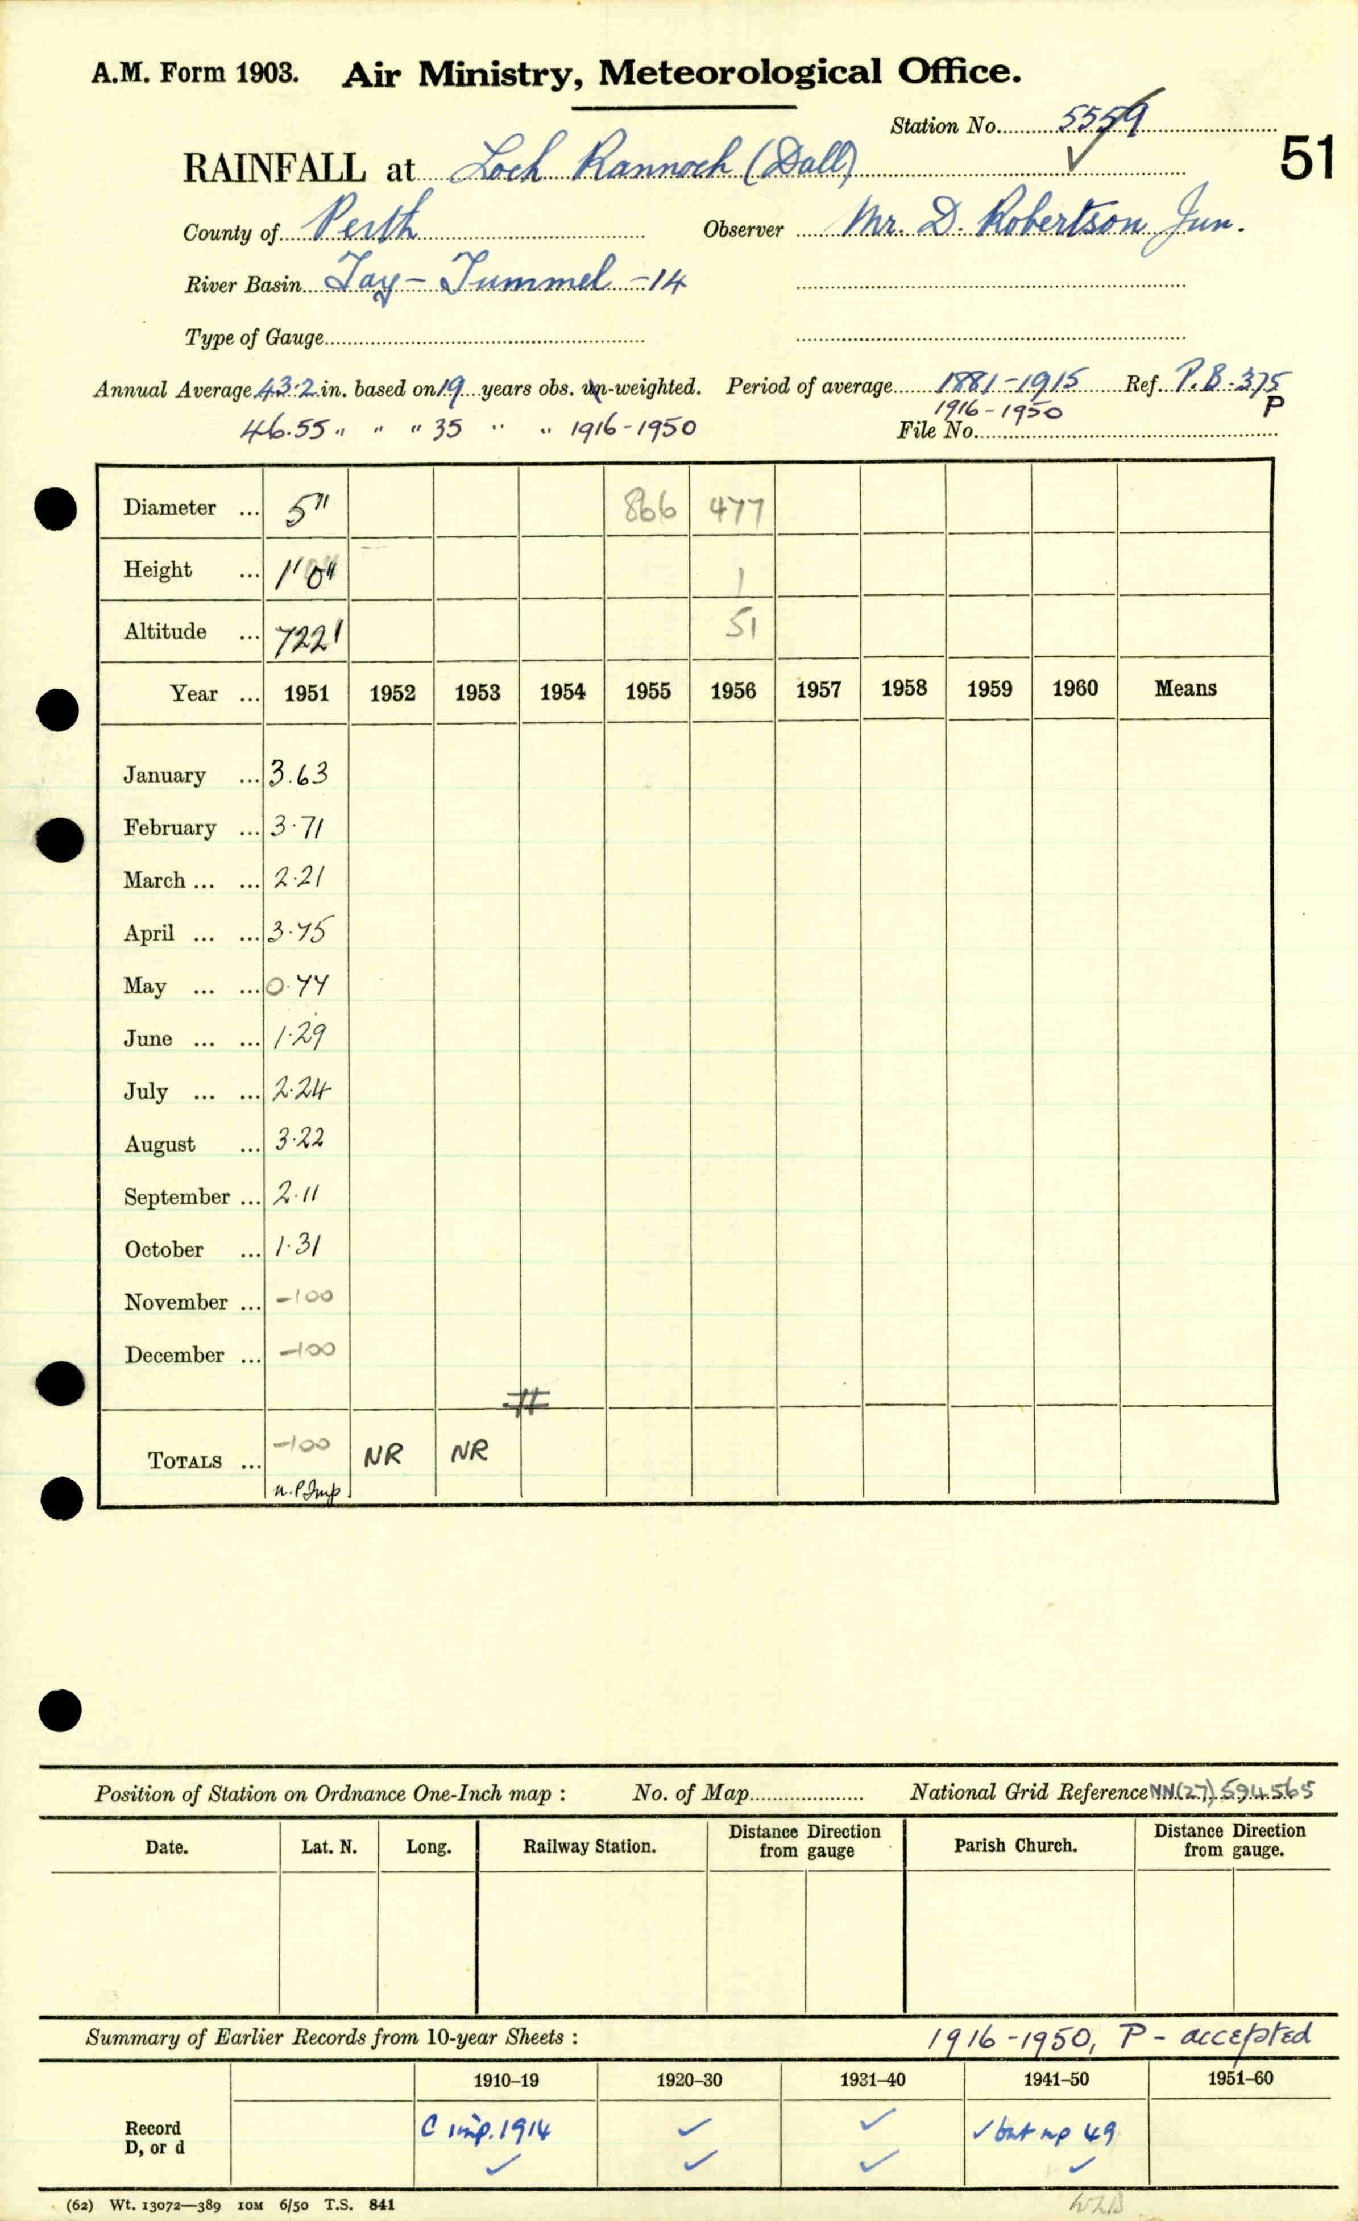 A.M. Form 1903. Air Ministry, Meteorological Office.
Station No. 5559
51
RAINFALL at Loch Rannoch (Dall)
County of Perth Observer Mr. D. Robertson Jun.
River Basin Tay - Tummel - 14
Type of Gauge
Annual Average 43.2 in. based on 19 years obs. un-weighted. Period of average 1881-1915 Ref. P.B. 375
46.55 " " " 35 " " 1916-1950 1916-1950 P
File No.
Diameter ... 5" 866 477
Height ... 1' 0" 1
Altitude ... 722' 51
Year ... 1951 1952 1953 1954 1955 1956 1957 1958 1959 1960 Means
January ... 3.63
February ... 3.71
March ... ... 2.21
April ... ... 3.75
May ... ... 0.77
June ... ... 1.29
July ... ... 2.24
August ... 3.22
September ... 2.11
October ... 1.31
November ... -100
December ... -100
TOTALS ... -100 NR NR
n.p Imp
Position of Station on Ordnance One-Inch map : No. of Map National Grid Reference NN(27) 594565
Date. Lat. N. Long. Railway Station. Distance Direction from gauge Parish Church. Distance Direction from gauge.
Summary of Earlier Records from 10-year Sheets : 1916-1950, P - accepted
1910–19 1920–30 1931–40 1941–50 1951–60
Record C imp. 1914 ✓ ✓ ✓ but np 49
D, or d ✓ ✓ ✓ ✓
(62) Wt. 13072—389 10M 6/50 T.S. 841